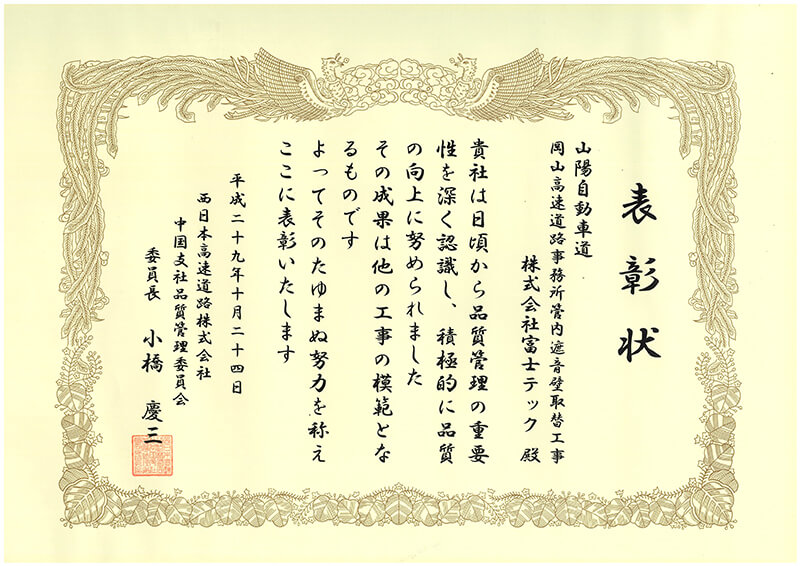 表彰状
山陽自動車道
岡山高速道路事務所管内遮音壁取替工事
株式会社富士テック 殿
貴社は日頃から品質管理の重要
性を深く認識し、積極的に品質
の向上に努められました
その成果は他の工事の模範とな
るものです
よってそのたゆまぬ努力を称え
ここに表彰いたします
平成二十九年十月二十四日
西日本高速道路株式会社
中国支社品質管理委員会
委員長 小橋 慶三